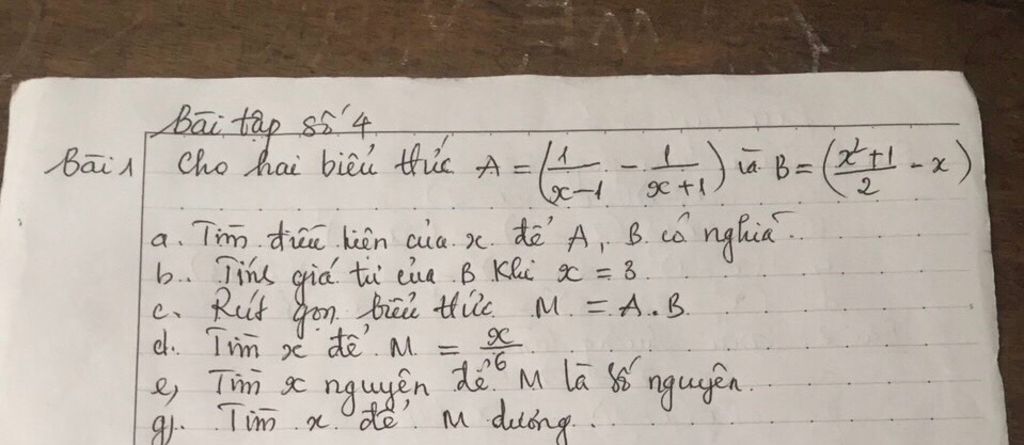 Bài tập số 4
Bài 1 Cho hai biểu thức A = (1/(x-1) - 1/(x+1)) và B = ((x²+1)/2 - x)
a. Tìm điều kiện của x để A, B có nghĩa.
b. Tính giá trị của B khi x = 3
c. Rút gọn biểu thức M = A.B
d. Tìm x để M = x/6
e, Tìm x nguyên để M là số nguyên.
g). Tìm x để M dương.